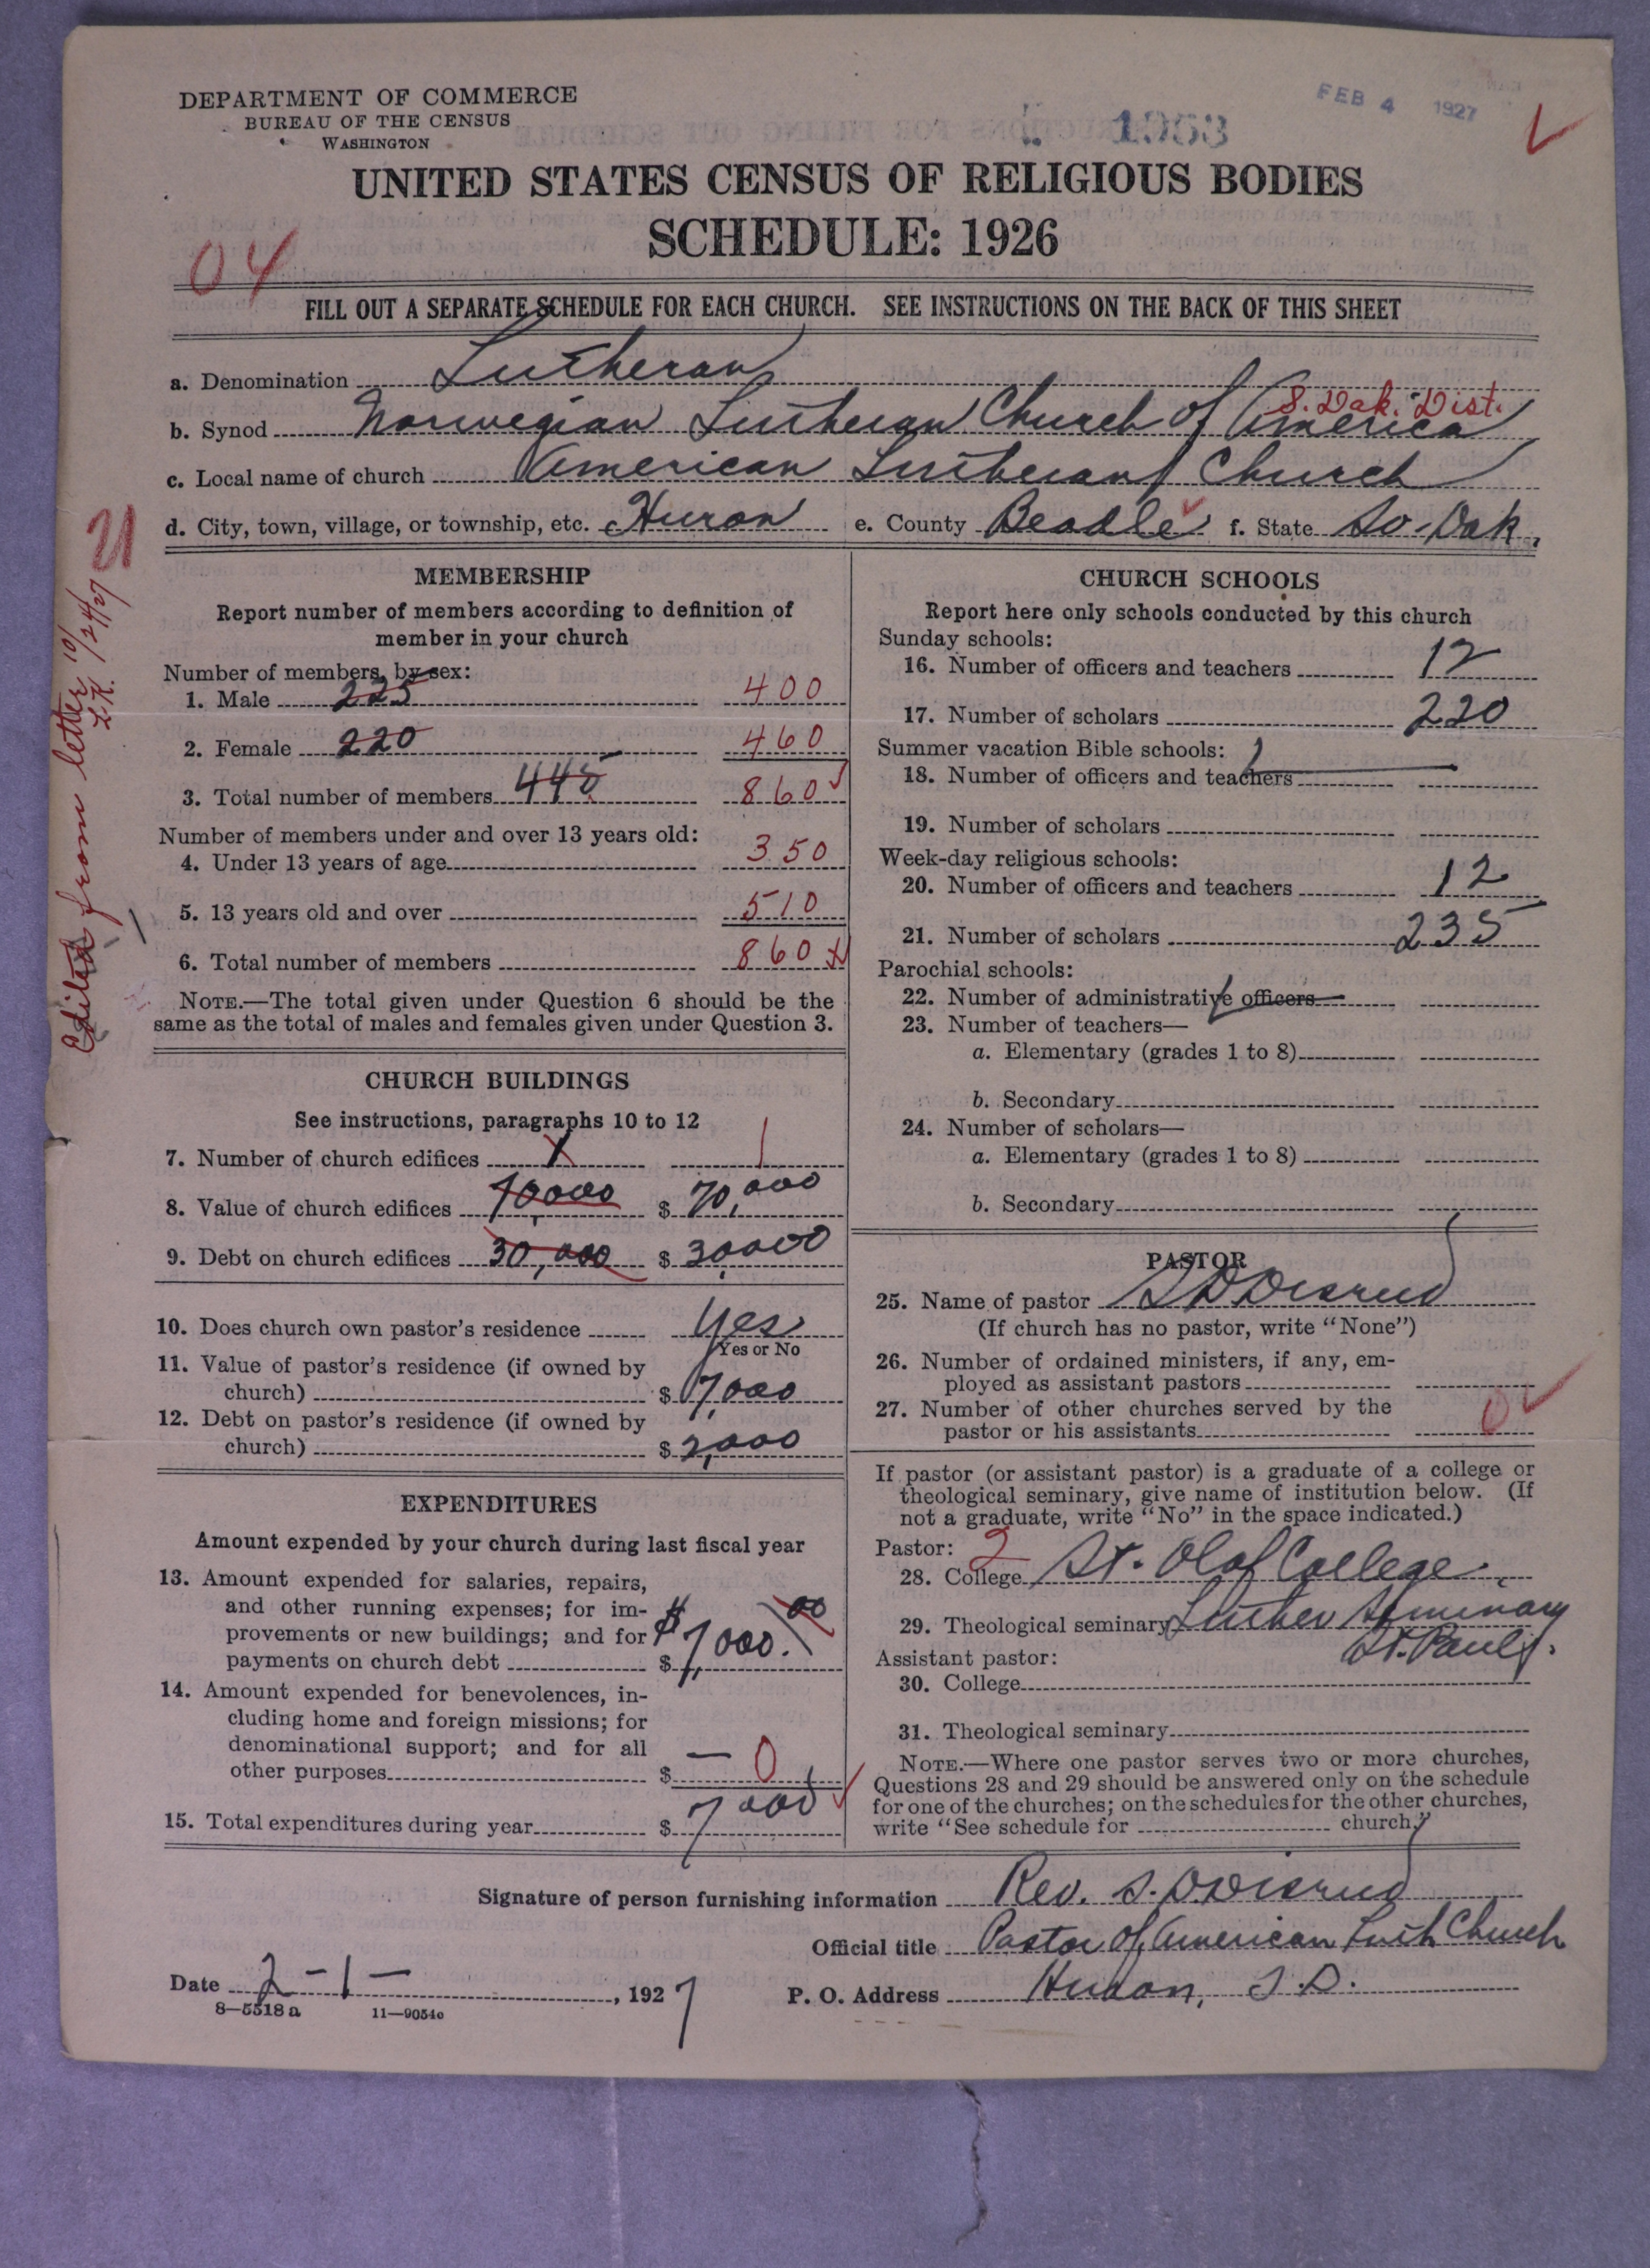 DEPARTMENT OF COMMERCE
BUREAU OF THE CENSUS
WASHINGTON
FEB 4 1927
1953
UNITED STATES CENSUS OF RELIGIOUS BODIES
SCHEDULE: 1926
04
FILL OUT A SEPARATE SCHEDULE FOR EACH CHURCH. SEE INSTRUCTIONS ON THE BACK OF THIS SHEET
a. Denomination Lutheran
S. Dak. Dist.
b. Synod Norwegian Lutheran Church of America
c. Local name of church American Lutheran Church
d. City, town, village, or township, etc. Huron e. County Beadle f. State So-Dak.
Edited from letter 10/24/27 L.K.
MEMBERSHIP
Report number of members according to definition of
member in your church
Number of members, by sex:
1. Male 225 400
2. Female 220 460
3. Total number of members 445 860
Number of members under and over 13 years old:
4. Under 13 years of age 350
5. 13 years old and over 510
6. Total number of members 860
NOTE.—The total given under Question 6 should be the
same as the total of males and females given under Question 3.
CHURCH BUILDINGS
See instructions, paragraphs 10 to 12
7. Number of church edifices 1 1
8. Value of church edifices 70,000 $ 70,000
9. Debt on church edifices 30,000 $ 30,000
10. Does church own pastor's residence Yes
Yes or No
11. Value of pastor's residence (if owned by
church) $ 7,000
12. Debt on pastor's residence (if owned by
church) $ 2,000
EXPENDITURES
Amount expended by your church during last fiscal year
13. Amount expended for salaries, repairs,
and other running expenses; for im-
provements or new buildings; and for
payments on church debt $ $7,000.00
14. Amount expended for benevolences, in-
cluding home and foreign missions; for
denominational support; and for all
other purposes $ — 0
15. Total expenditures during year $ 7000
CHURCH SCHOOLS
Report here only schools conducted by this church
Sunday schools:
16. Number of officers and teachers 12
17. Number of scholars 220
Summer vacation Bible schools:
18. Number of officers and teachers
19. Number of scholars
Week-day religious schools:
20. Number of officers and teachers 12
21. Number of scholars 235
Parochial schools:
22. Number of administrative officers
23. Number of teachers—
a. Elementary (grades 1 to 8)
b. Secondary
24. Number of scholars—
a. Elementary (grades 1 to 8)
b. Secondary
PASTOR
25. Name of pastor
(If church has no pastor, write "None")
26. Number of ordained ministers, if any, em-
ployed as assistant pastors
27. Number of other churches served by the
pastor or his assistants 0
If pastor (or assistant pastor) is a graduate of a college or
theological seminary, give name of institution below. (If
not a graduate, write "No" in the space indicated.)
Pastor: 2
28. College St. Olaf College
29. Theological seminary Luther Seminary
St. Paul
Assistant pastor:
30. College
31. Theological seminary
NOTE.—Where one pastor serves two or more churches,
Questions 28 and 29 should be answered only on the schedule
for one of the churches; on the schedules for the other churches,
write "See schedule for church."
Signature of person furnishing information Rev. S.
Official title Pastor of American Luth Church
Date 2-1- , 1927
P. O. Address Huron, S.D.
8—5518a 11—9054c